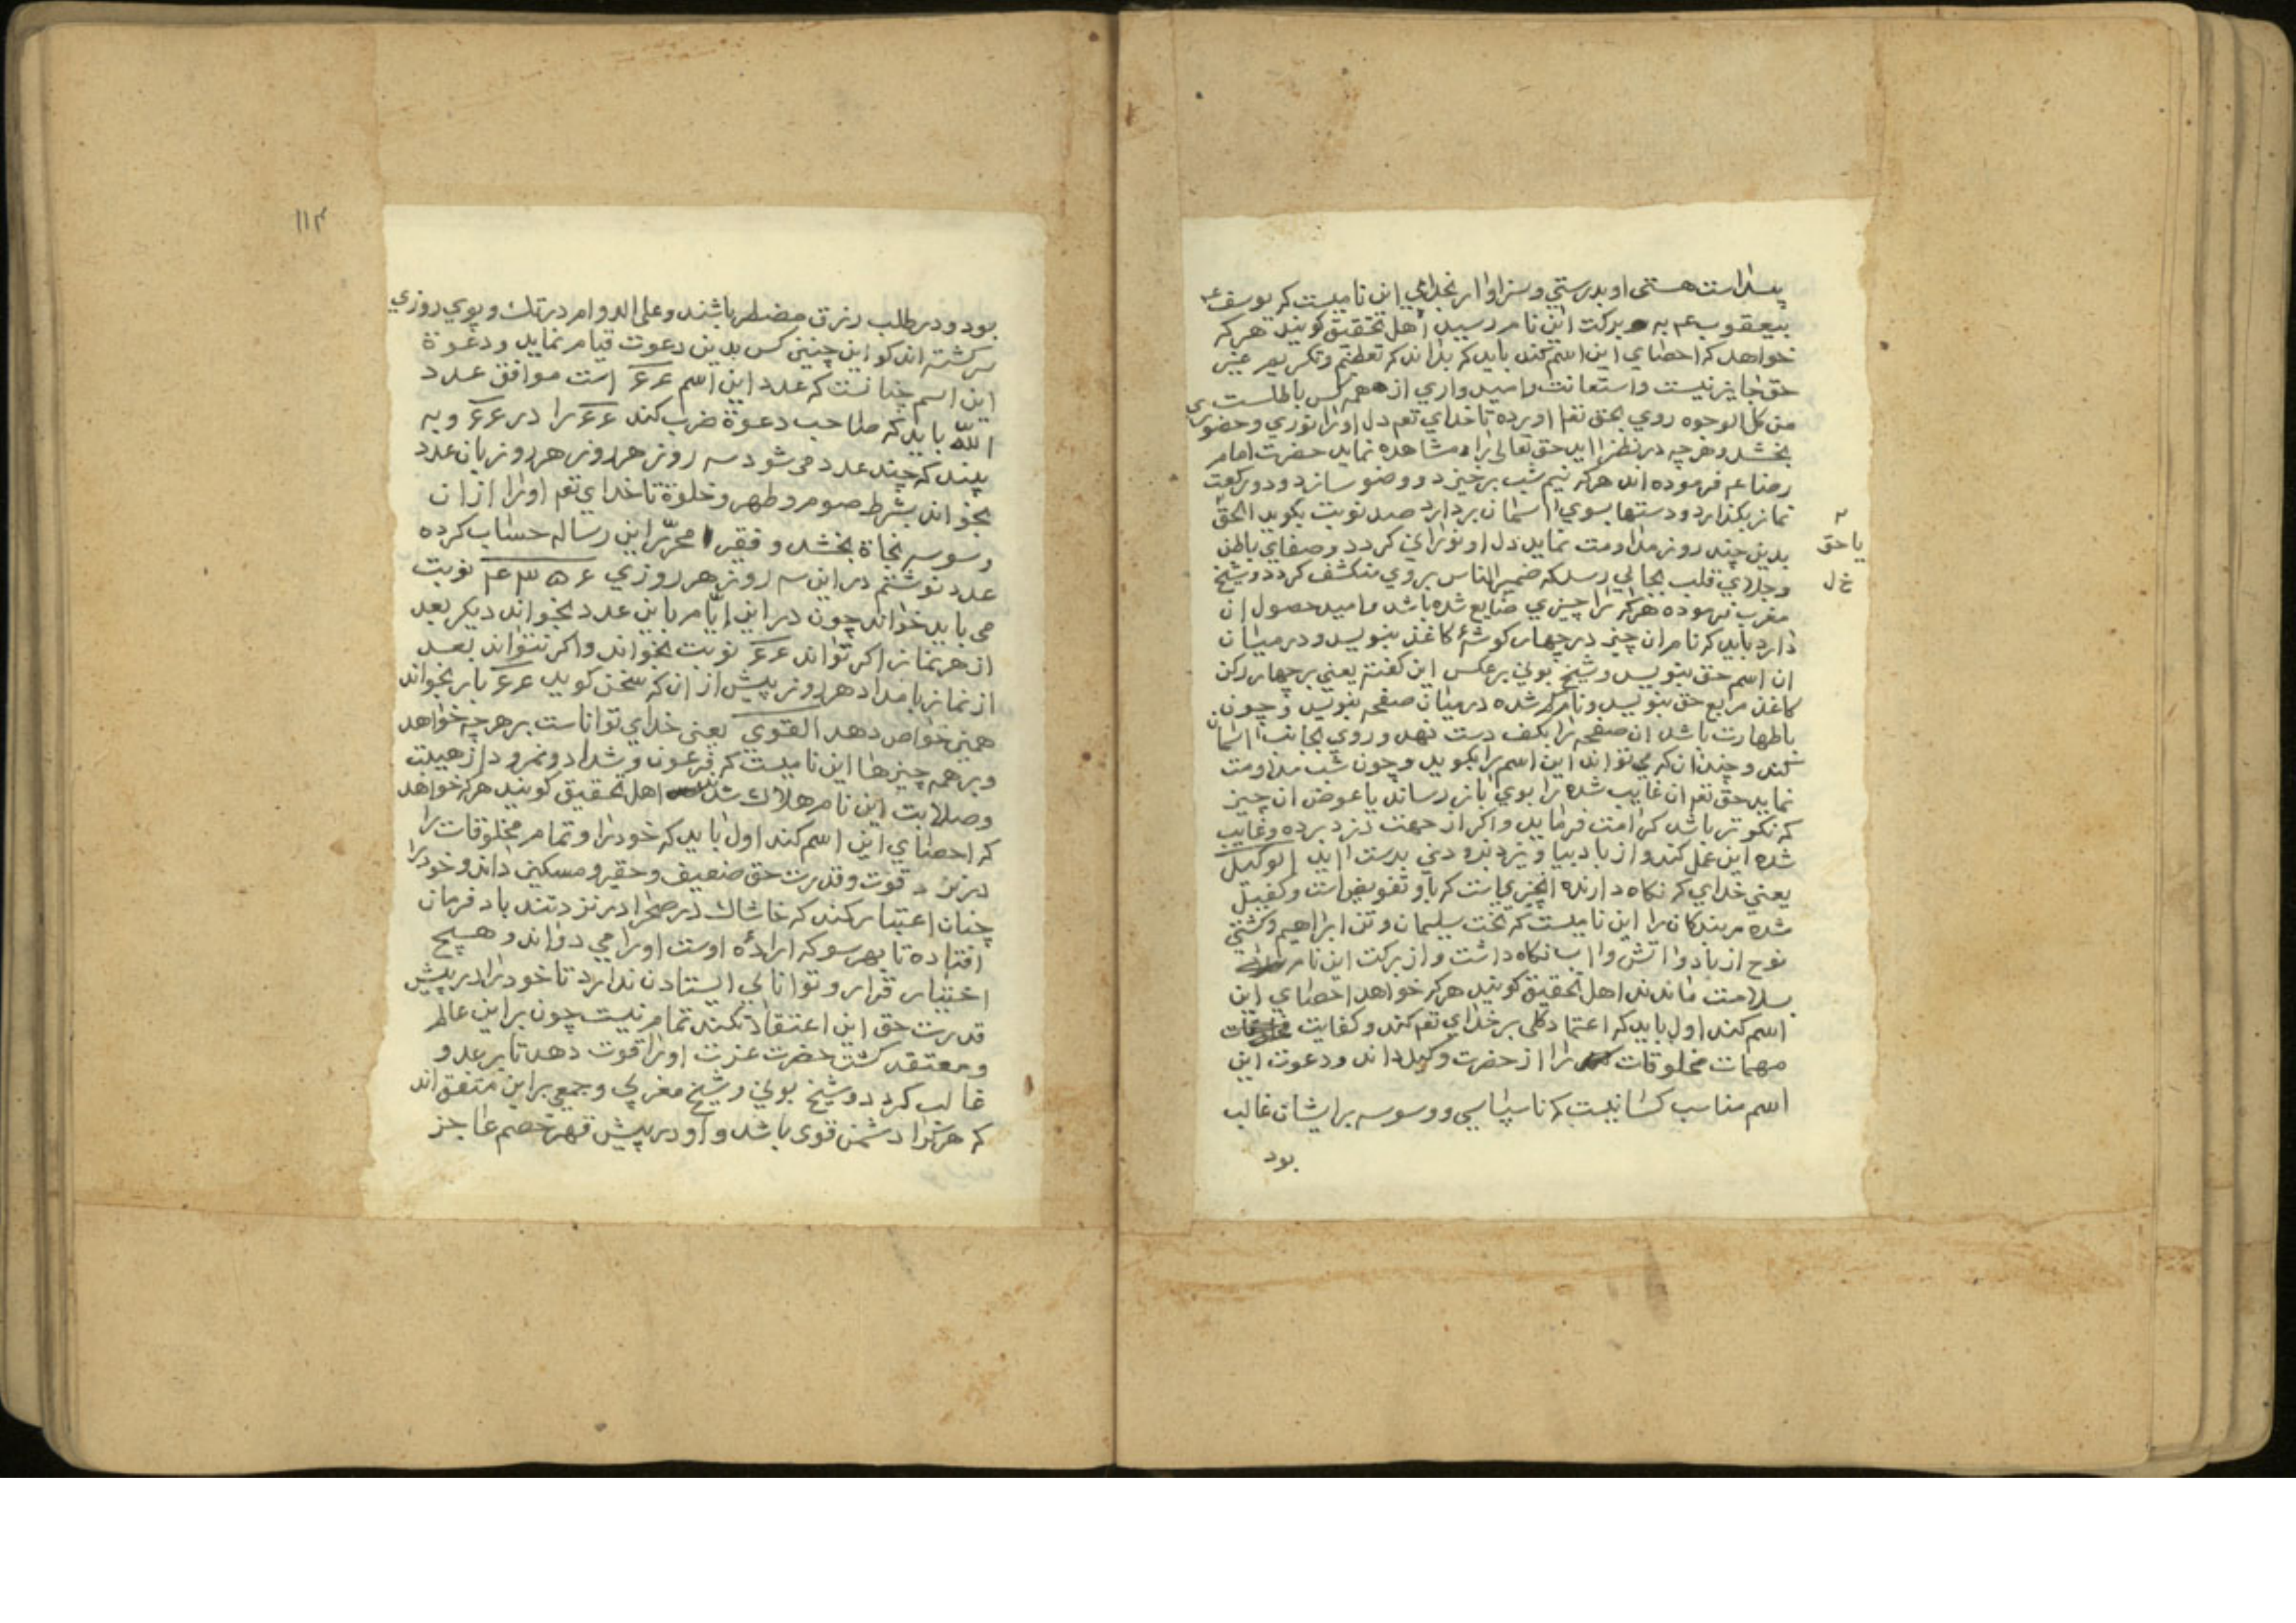 پیداست هستی او بدرستی و سزاوار بخدایی این نامیست که یوسف ع
بیعقوب ع م به برکت این نام رسید اهل تحقیق کویند هر که
خواهد که احصای این اسم کند باید که بداند که تعظیم و تکریم غیر
حق جایز نیست و استعانت و امیدواری از همه کس باطلست
من کل الوجوه روی بحق تعم اورده تا خدای تعم دل اورا نوری و حضوری
بخشد و هر چه در نظر اید حق تعالی را مشاهده نماید حضرت امام
رضا عم فرموده اند هر که نیم شب برخیزد و وضو سازد و دو رکعت
نماز بکذارد و دستها بسوی اسمان بردارد صد نوبت بکوید الحق
بدین چند روز مداومت نماید دل او نورانی کردد و صفای باطن
یا حق
خ ل
وجلای قلب بجایی رسد که ضمیر الناس بر وی منکشف کردد و شیخ
مغرب فرموده هر که را چیزی ضایع شده باشد و امید حصول ان
دارد باید که نام ان چیز در چهار کوشهٔ کاغذ بنویسد و در میان
ان اسم حق بنویسد و شیخ بونی بر عکس این کفته یعنی بر چهار رکن
کاغذ مربع حق بنویسد و نام کم شده در میان صفحه بنویسد و چون
باطهارت باشد ان صفحه را بکف دست نهد و روی بجانب اسمان
کند و چندان که می تواند این اسم را بکوید و چون شب مداومت
نماید حق تعم ان غایب شده را بوی باز رساند یا عوض ان چیز
که نکوتر باشد کرامت فرماید و اکر از جهت دزد برده و غایب
شده این عمل کند و از باد بیا و یزد بزودی بدست اید الوکیل
یعنی خدای که نکاه دارنده انچیزیاست که باو تفویض است و کفیل
شده مر بندکان را این نامیست که تخت سلیمان و تن ابراهیم و کشتی
نوح از باد و اتش و اب نکاه داشت و از برکت این نام
بسلامت ماندند اهل تحقیق کویند هر که خواهد احصای این
اسم کند اول باید که اعتماد کلی بر خدای تعم کند و کفایت
مهمات مخلوقات را از حضرت وکیل داند و دعوت این
اسم مناسب کسانیست که ناسپاسی و وسوسه بر ایشان غالب
بود
١١٣
بود و در طلب رزق مضطر باشند و علی الدوام در تک و پوی روزی
سرکشته اند کو این چنین کس بدین دعوت قیام نماید و دعوة
این اسم چنانست که عدد این اسم ۶۶ است موافق عدد
الله باید که صاحب دعوة ضرب کند ۶۶ را در ۶۶ و به
بیند که چند عدد می شود سه روز هر روز هر روز بان عدد
بخواند بشرط صوم و طهر و خلوة تا خدای تعم اورا از ان
وسوسه نجاة بخشد و فقیر محرّر این رساله حساب کرده
عدد نوشتم در این سه روز هر روزی ۴۳۵۶ نوبت
می باید خواند چون در این ایام باین عدد بخواند دیکر بعد
از هر نماز اکر تواند ۶۶ نوبت بخواند و اکر نتواند بعد
از نماز بامداد هر روز پیش از ان که سخن کوید ۶۶ بار بخواند
همین خواص دهد القوی یعنی خدای تواناست بر هر چه خواهد
و بر همه چیزها این نامیست که فرعون و شداد و نمرود از هیبت
و صلابت این نام هلاک شدند اهل تحقیق کویند هر که خواهد
که احصای این اسم کند اول باید که خود را و تمام مخلوقات را
در نزد قوت و قدرت حق ضعیف و حقیر و مسکین داند و خود را
چنان اعتبار کند که خاشاک در صحرا در نزد تند باد فرمان
افتاده تا بهر سو که ارادهٔ اوست اورا می دواند و هیچ
اختیار قرار و توانایی ایستادن ندارد تا خود را در پیش
قدرت حق این اعتقاد نکند تمام نیست چون بر این عالم
و معتقد کشت حضرت عزت اورا قوت دهد تا بر عدو
غالب کردد و شیخ بونی و شیخ مغربی و جمعی براین متفق اند
که هر کرا دشمن قوی باشد و او در پیش قهر خصم عاجز